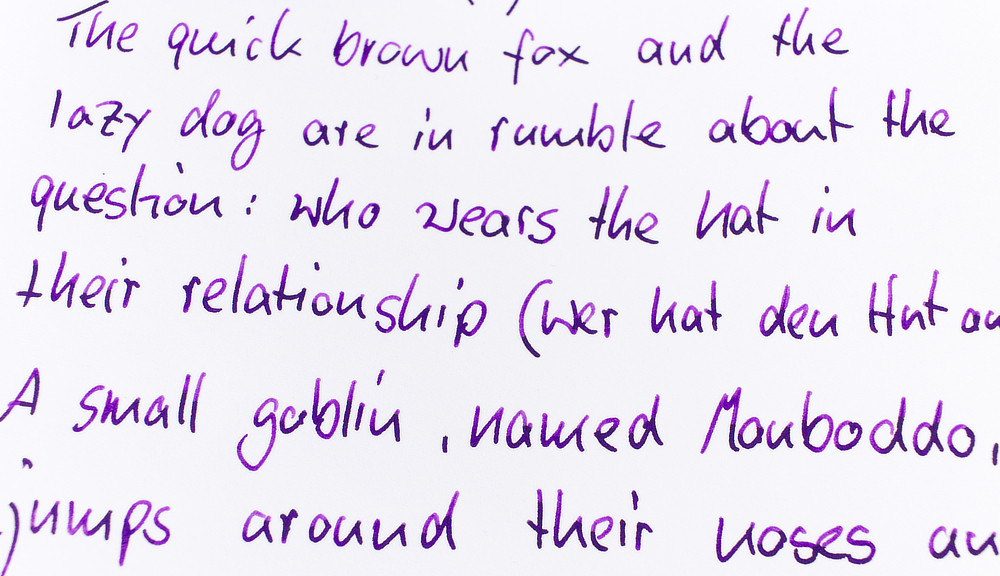 The quick brown fox and the
lazy dog are in rumble about the
question: who wears the hat in
their relationship (wer hat den Hut au
A small goblin, named Monboddo,
jumps around their noses an